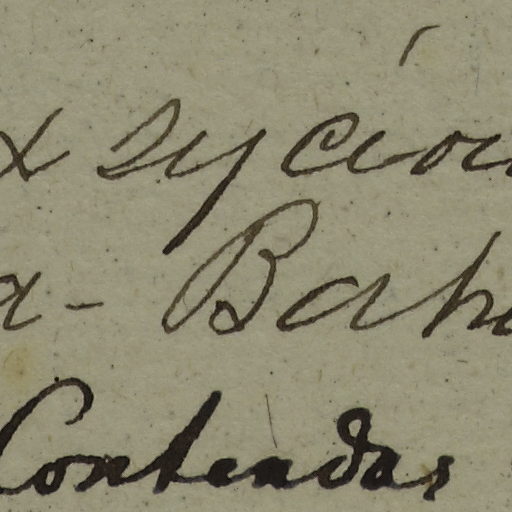 x sycior
a - Bah
Contendas